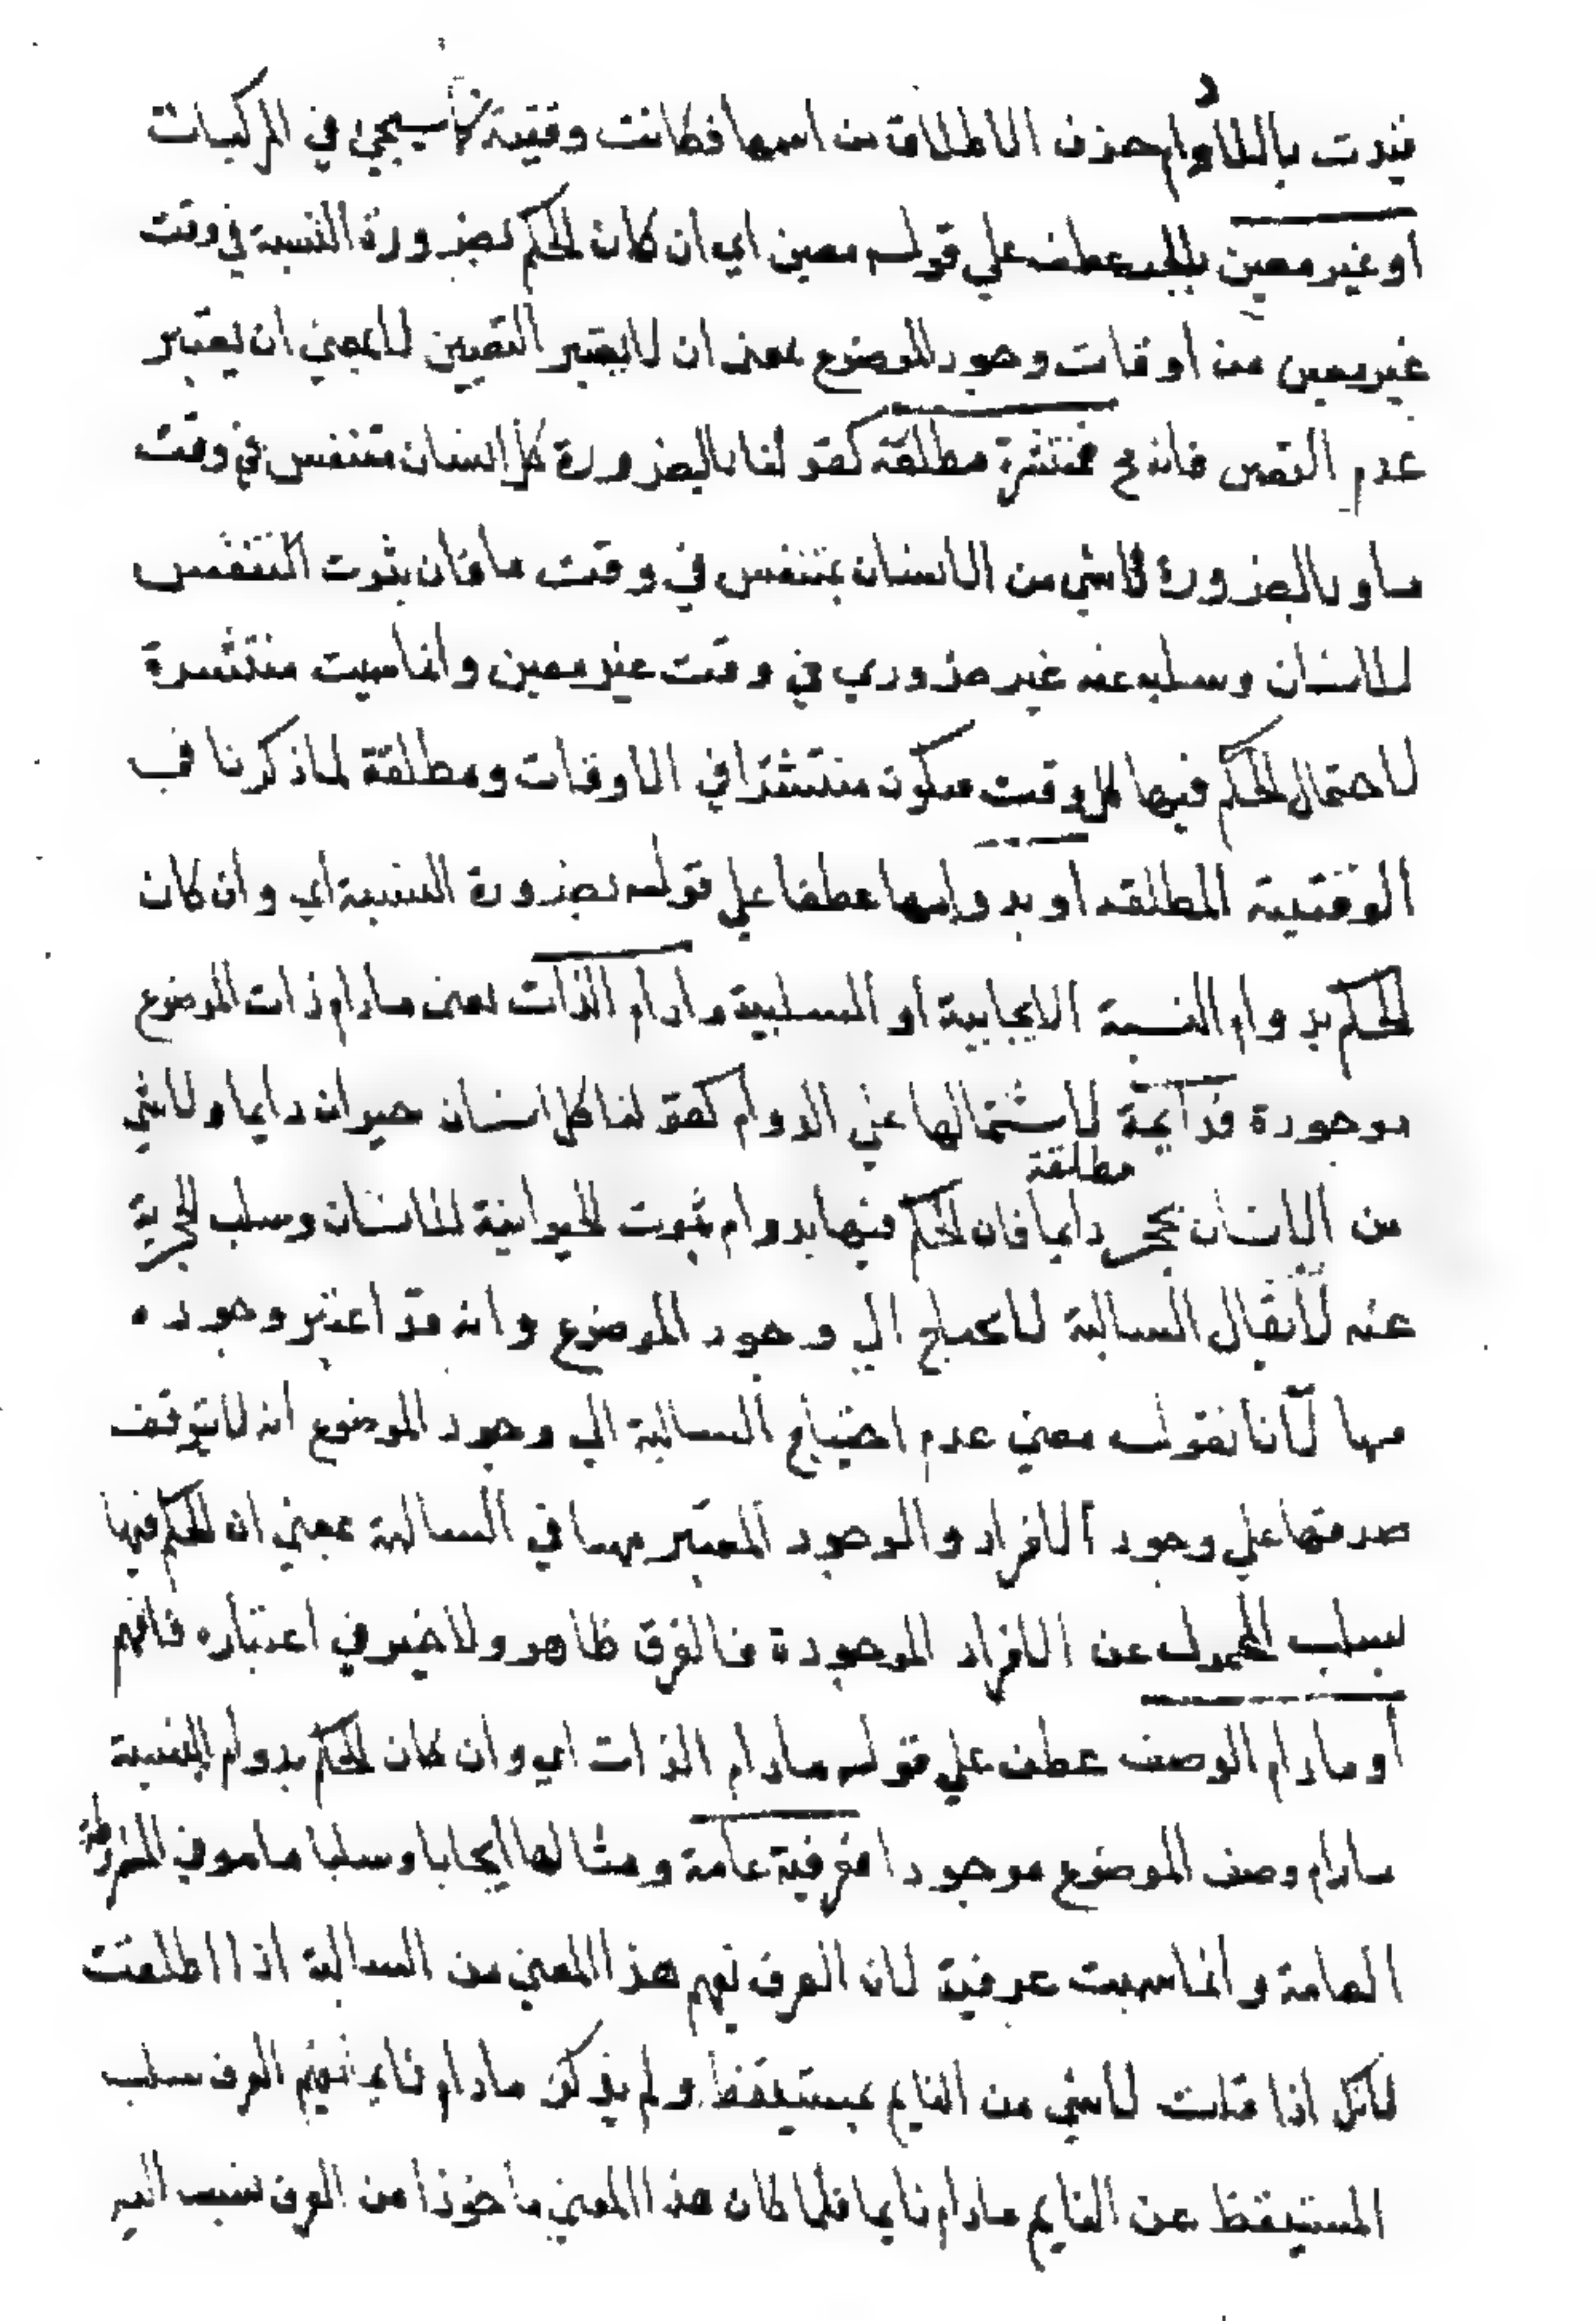 قيدت باللادوام حذف الاطلاق من اسمها فكانت وقتية كما سيجيئ في المركبات
او غير معين بالجر عطف علي قوله معين اي ان كان الحكم بضرورة النسبة في وقت
غير معين من اوقات وجود الموضوع بمعني ان لا يعتبر التعيين لا بمعني ان يعتبر
عدم التعين فانه ح منتشرة مطلقة كقولنا بالضرورة كل انسان متنفس في وقت
ما وبالضرورة لا شي من الانسان بمتنفس في وقت ما فان ثبوت التنفس
للانسان وسلبه عنه غير ضروري في وقت غير معين وانما سميت منتشرة
لاحتمال الحكم فيها كل وقت فيكون منتشرا في الاوقات ومطلقة لما ذكرنا في
الوقتية المطلقة او بدوامها عطف علي قوله بضرورة النسبة اي وان كان
الحكم بدوام النسبة الايجابية او السلبية مادام الذات بمعني مادام ذات الموضوع
موجودة فدائمة لاشتمالها علي الدوام كقولنا كل انسان حيوان دايما ولا شي
مطلقة
من الانسان بحجر دايما فان الحكم فيها بدوام ثبوت الحيوانية للانسان وسلب الحجرية
عنه لا يقال السالبة لا تحتاج الي وجود الموضوع وانه قد اعتبر وجوده
فيها لانا نقول معني عدم احتياج السالبة الي وجود الموضوع انه لا يتوقف
صدقها علي وجود الافراد والوجود المعتبر ههنا في السالبة بمعني ان الحكم فيها
بسلب المحمول عن الافراد الموجودة فالفرق ظاهر ولا خير في اعتباره فافهم
او مادام الوصف عطف علي قوله مادام الذات اي وان كان الحكم بدوام النسبة
مادام وصف الموضوع موجودا فعرفية عامة ومثالها ايجابا وسلبا ما مر في المشروطة
العامة وانما سميت عرفية لان العرف يفهم هذا المعني من السالبة اذا اطلقت
لانك اذا قلت لا شي من النايم بمستيقظ ولم يذكر مادام نايما يفهم العرف سلب
المستيقظ عن النايم مادام نايما فلما كان هذا المعني ماخوذا من العرف نسبت اليه